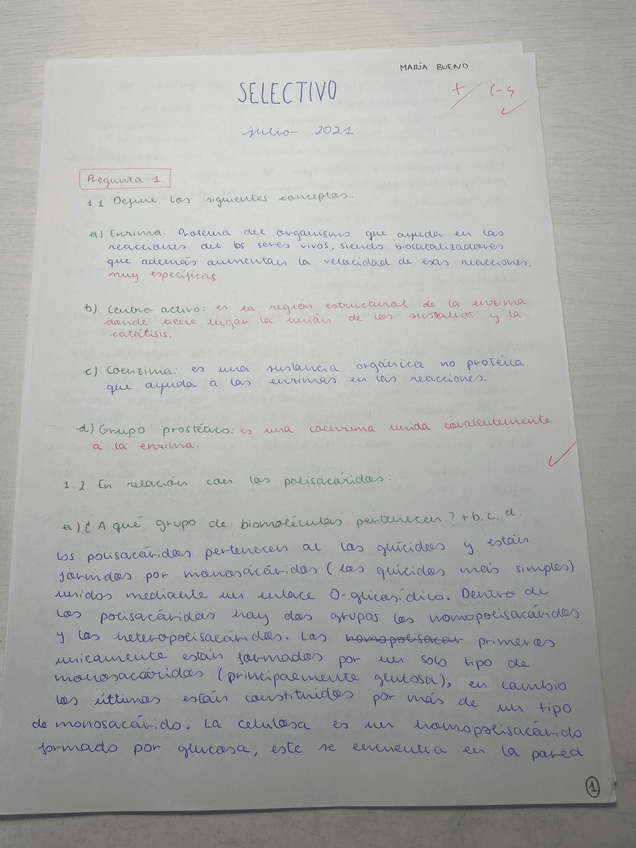 MARÍA BUENO
SELECTIVO
julio 2021
Pregunta 1
1.1 Define los siguientes conceptos:
a) Enzima: Proteína del organismo que ayuda en las
reacciones del los seres vivos, siendo biocatalizadores
que además aumentan la velocidad de esas reacciones.
muy específicas
b) Centro activo: es la región estructural de la enzima
donde tiene lugar la unión de los sustratos y la
catálisis.
c) Coenzima: es una sustancia orgánica no protéica
que ayuda a las enzimas en las reacciones.
d) Grupo prostético: es una coenzima unida covalentemente
a la enzima.
1.2 En relación con los polisacáridos:
a) ¿A qué grupo de biomoléculas pertenecen? + b, c, d.
Los polisacáridos pertenecen al las glúcidos y están
formdos por monosacáridos (los glúcidos más simples)
unidos mediante un enlace O-glicosídico. Dentro de
los polisacáridos hay dos grupos los homopolisacáridos
y los heteropolisacáridos. Los homopolisacar primeros
unicamente están formados por un solo tipo de
monosacáridos (principalmente glucosa), en cambio
los últimos están constituidos por más de un tipo
de monosacárido. La celulosa es un homopolisacárido
formado por glucosa, este se encuentra en la pared
1